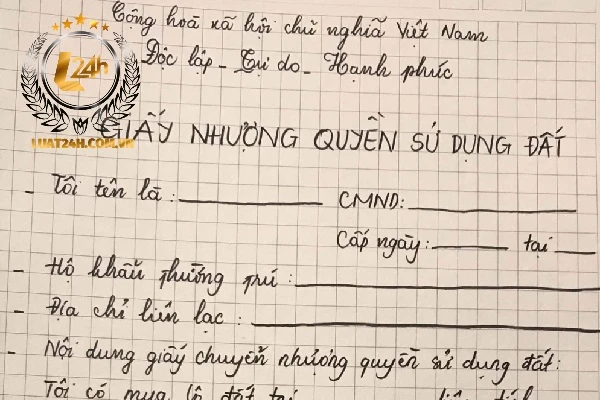 Cộng hoà xã hội chủ nghĩa Việt Nam
Độc lập - Tự do - Hạnh phúc
L24h
LUAT24H.COM.VN
GIẤY NHƯỢNG QUYỀN SỬ DỤNG ĐẤT
- Tôi tên là : CMND:
Cấp ngày: tại
- Hộ khẩu thường trú :
- Địa chỉ liên lạc :
- Nội dung giấy chuyển nhượng quyền sử dụng đất:
Tôi có mua lô đất tại